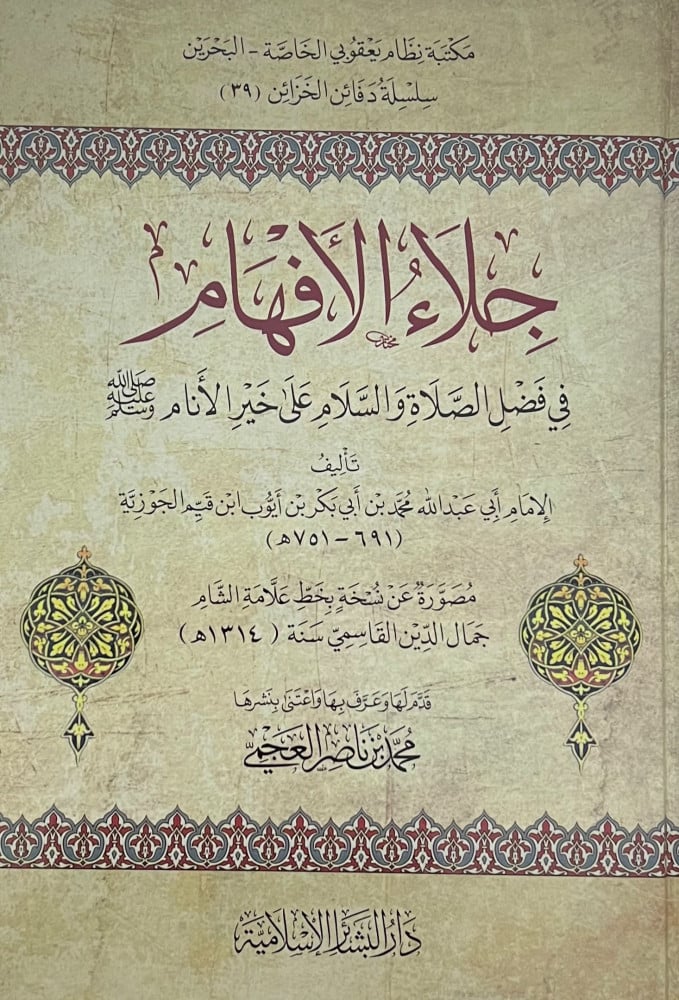 مَكتَبَة نِظَام يَعْقُوبي الخَاصَّة - البَحرَين
سِلسِلَة دَفَائِن الخَزَائِن (٣٩)
جِلَاءُ الأَفهَامِ
فِي فَضْلِ الصَّلَاةِ وَالسَّلَامِ عَلَى خَيْرِ الأَنَامِ ﷺ
تَأليفُ
الإِمَامِ أَبي عَبدِ اللهِ مُحَمَّد بن أَبي بَكْر بن أَيُّوب ابن قَيِّم الجَوْزِيَّة
(٦٩١ - ٧٥١هـ)
مُصَوَّرَةٌ عَنْ نُسْخَةٍ بِخَطِّ عَلَّامَةِ الشَّام
جَمَالِ الدِّين القَاسِمِيّ سَنَة (١٣١٤هـ)
قَدَّمَ لَهَا وَعَرَّفَ بِهَا وَاعْتَنَى بِنَشرِهَا
مُحَمَّد بْن نَاصِر العَجَمِي
دَارُ البَشَائِرِ الإِسْلَامِيَّة